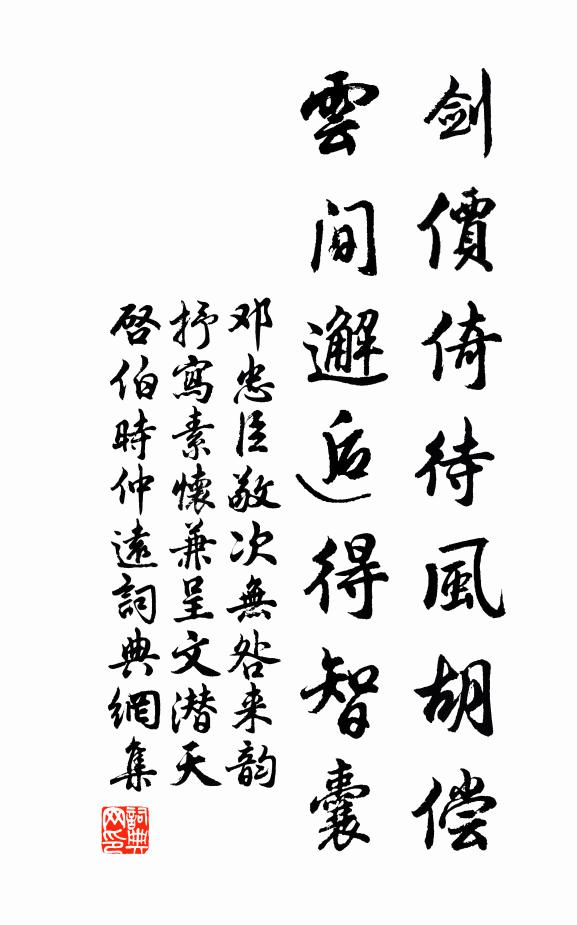 剑價倚待風胡偿
雲间邂逅得智囊
邓忠臣敬次無咎来韵
抒寫素懷兼呈文潜天
啓伯時仲遠詞典網集
詞典网印